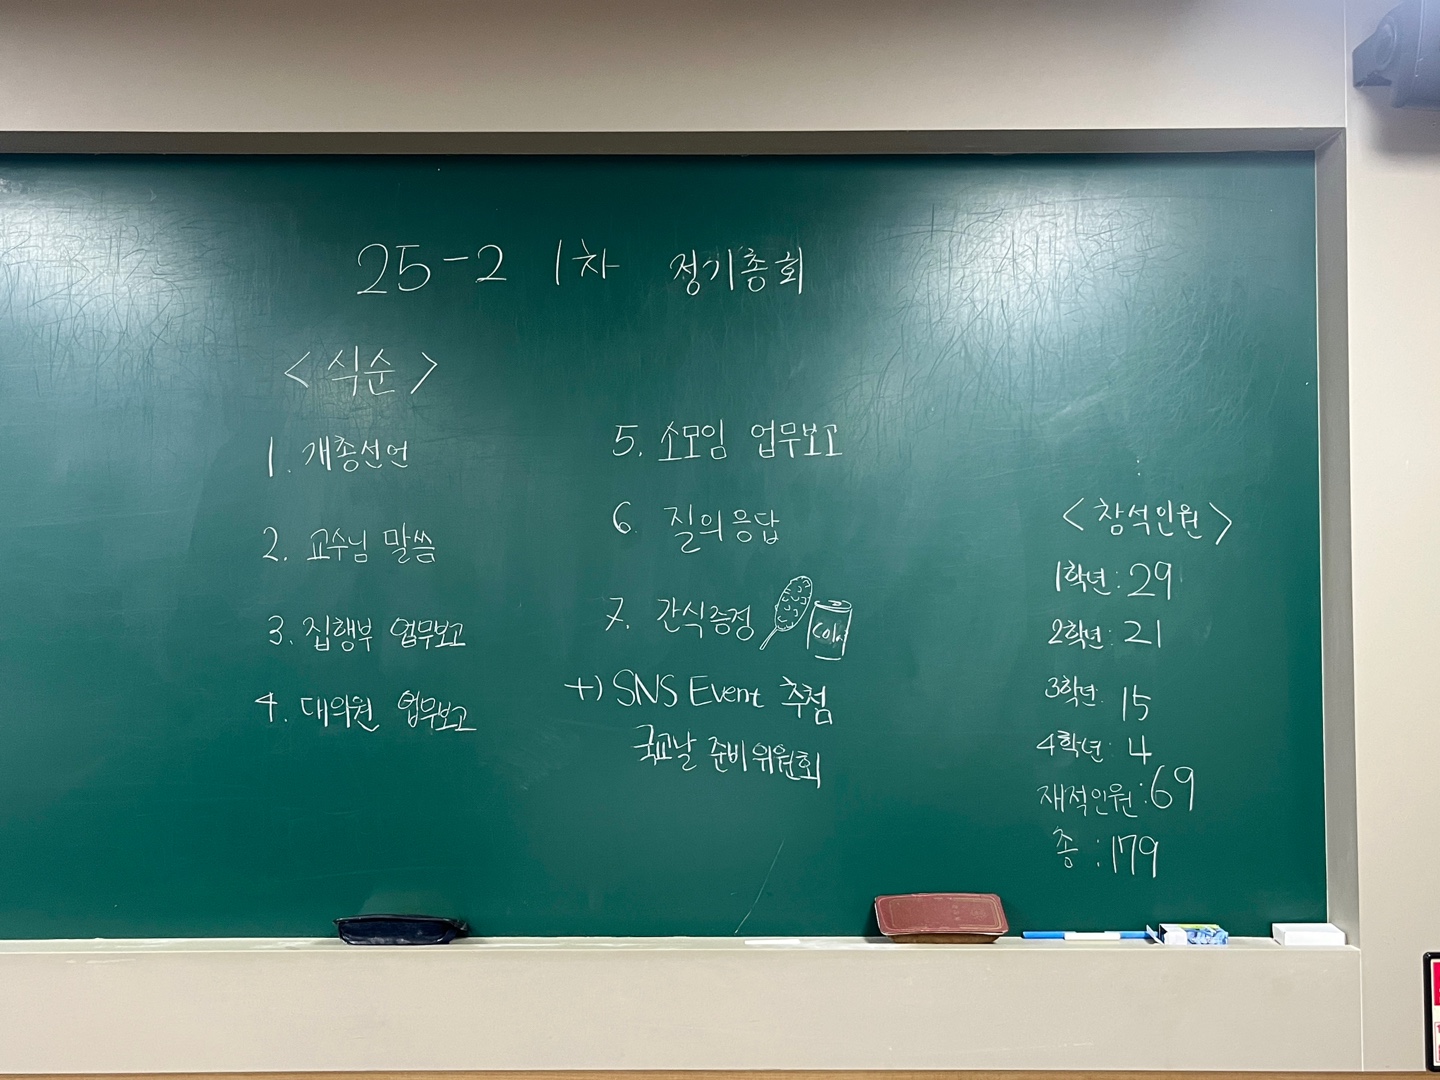 25-2 1차 정기총회
<식순>
1. 개총선언
2. 교수님 말씀
3. 집행부 업무보고
4. 대의원 업무보고
5. 소모임 업무보고
6. 질의응답
7. 간식증정
Cola
+) SNS Event 추첨
국교날 준비위원회
<참석인원>
1학년: 29
2학년: 21
3학년: 15
4학년: 4
재적인원: 69
총: 179